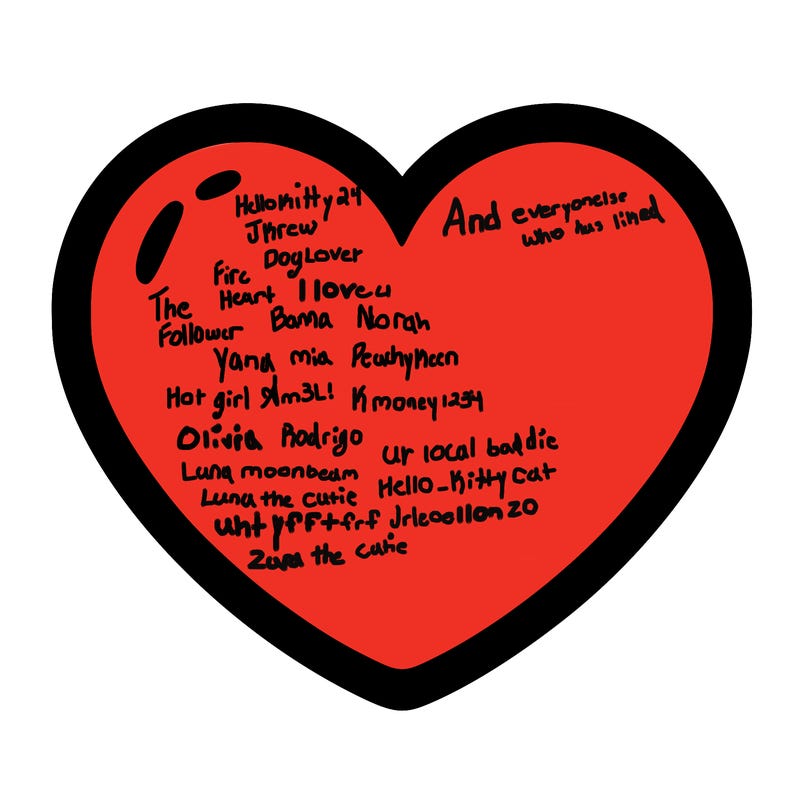 HelloKitty 24
JKrew
DogLover
Fire
Heart I love u
The
Follower Bama Norah
Yana mia PeachyKeen
Hot girl Am3L! K money 1234
Olivia Rodrigo
ur local baddie
Luna moonbeam
Hello_Kitty cat
Luna the cutie
Zara the cutie
And everyonelse
who has liked